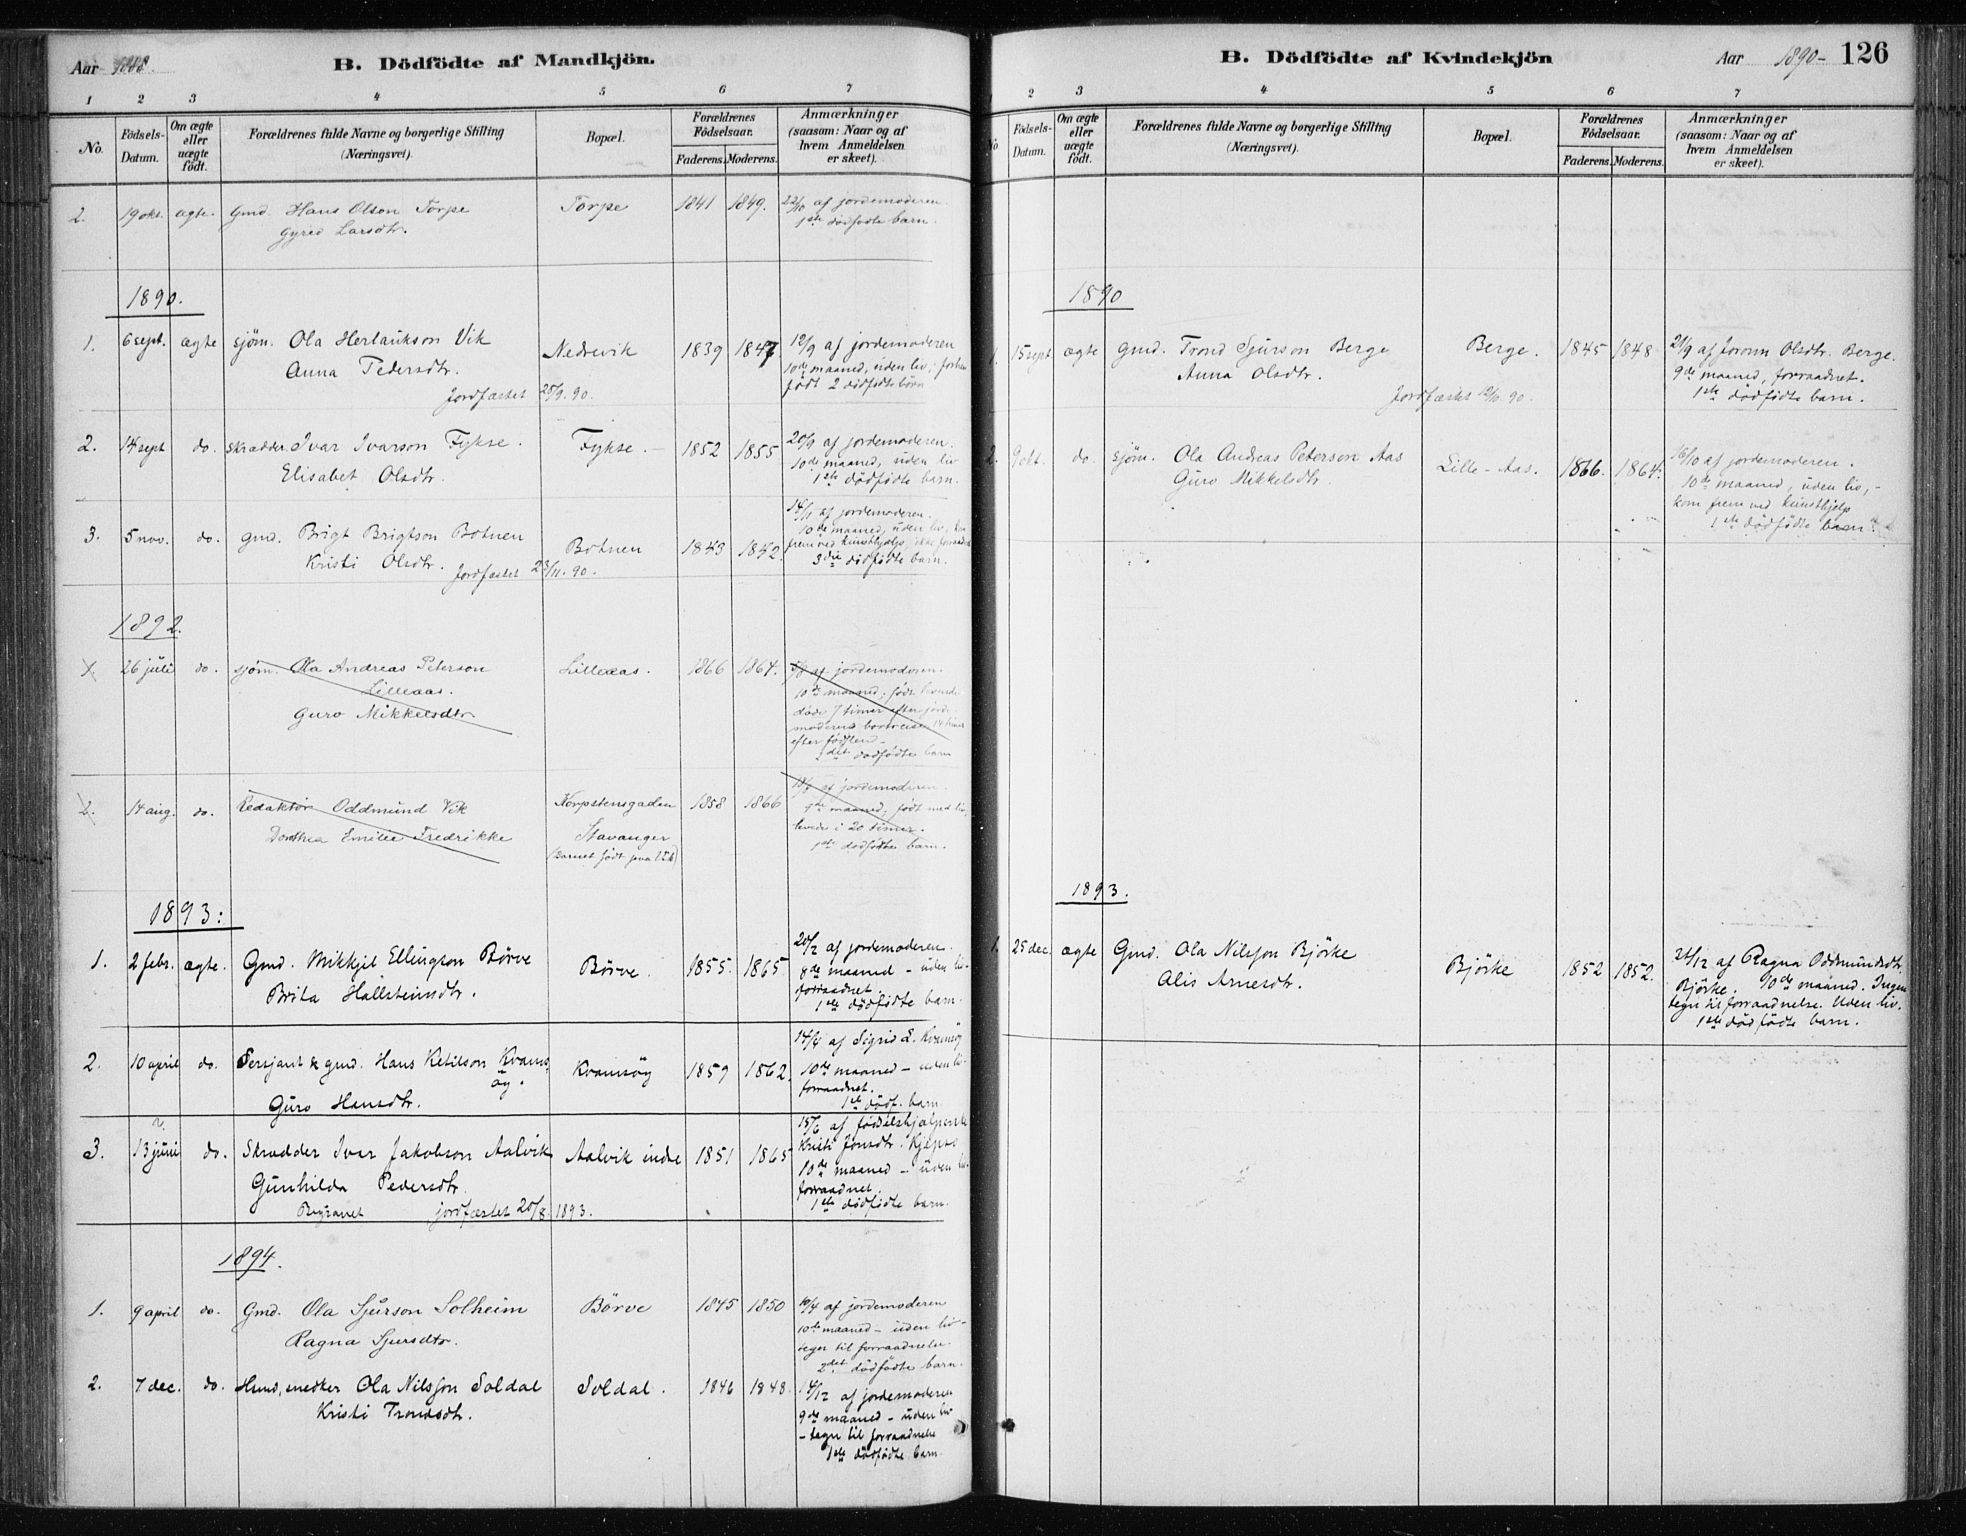 Aar 1888.
B. Dödfödte af Mandkjön.
1 2 3 4 5 6 7
No.
Födsels-Datum.
Om ægte eller uægte födt.
Forældrenes fulde Navne og borgerlige Stilling (Næringsvei).
Bopæl.
Forældrenes Födselsaar.
Faderens. Moderens.
Anmærkninger (saasom: Naar og af hvem Anmeldelsen er skeet).
2. 19 okt. ægte. Gmd. Hans Olson Torpe Torpe 1841 1849. 22/10 af jordemoderen.
Gyred Larsdtr. 1ste dödfödte barn.
1890.
1. 6 sept. ægte sjöm. Ola Herlaukson Vik Nedrevik 1839 1847 12/9 af jordemoderen
Anna Pedersdtr. 10de maaned, uden liv,
Jordfæstet 25/9. 90. födt 2 dödfödte börn
2. 14 sept do. skrædder Ivar Ivarson Fykse. Fykse. 1852 1855 20/9 af jordemoderen.
Elisabet Olsdtr. 10de maaned, uden liv
1ste dödfödte barn.
3. 5 nov. do. gmd. Brigt Brigtson Botnen Botnen 1843 1842. 14/11 af jordemoderen.
Kristi Olsdtr. 10de maaned, uden liv,
Jordfæstet 23/11. 90. frem ved kunsthjælp,
3die dödfödte barn.
1892.
1. 26 juli do. sjöm. Ola Andreas Peterson Lilleaas. 1866 1864. af jordemoderen.
Lilleaas. 10de maaned, födt levende
Guro Mikkelsdtr döde 7 timer efter
14 timer
efter födslen
dödfödte barn
2. 14 aug. do. Redaktör Oddmund Vik Korpstensgaden 1858 1866 af jordemoderen.
Dorothea Emilie Fredrikke Stavanger 9de maaned, födt med liv,
(Barnet födt paa Vik) levede i 20 timer.
1ste dödfödte barn.
1893:
1. 2 febr. ægte. Gmd. Mikkjel Ellingson Börve Börve. 1855. 1865 20/2 af jordemoderen.
Brita Hallsteinsdtr. 8de maaned – uden liv
forraadnet.
1ste dödfödte barn.
2. 10 april do. Sersjant & gmd. Hans Ketilson Kvamsöy. Kvamsöy 1859 1862. 14/4 af Sigrid L. Kvamsöy
Guro Hansdtr. 10de maaned – uden liv
forraadnet.
1ste dödf. barn
3. 13 juni do. Skrædder Ivar Jakobson Aalvik Aalvik indre 1851 1865 15/6 af födselshjælperske
Gunhilda Pedersdtr. Kristi Jonsdtr. Kjepso
Begravet jordfæstet 20/8. 1893. 10de maaned – uden liv
forraadnet.
1ste dödfödte barn.
1894.
1. 9 april do. Gmd. Ola Sjurson Solheim Börve 1845 1850 10/4 af jordemoderen
Ragna Sjursdtr. 10de maaned – uden liv –
tegn til forraadnelse.
2det dödfödte barn.
2. 7 dec. do. Husmd, snedker Ola Nilsson Soldal Soldal. 1846 1848. 14/12 af jordemoderen
Kristi Trondsdtr. 9de maaned – uden liv
– tegn til forraadnelse
1ste dödfödte barn.
B. Dödfödte af Kvindekjön
Aar 1890– 126
1 2 3 4 5 6 7
No
Födsels-Datum.
Om ægte eller uægte födt.
Forældrenes fulde Navne og borgerlige Stilling (Næringsvei).
Bopæl.
Forældrenes Födselsaar.
Faderens. Moderens.
Anmærkninger (saasom: Naar og af hvem Anmeldelsen er skeet).
1890
1. 15 sept. ægte gmd. Trond Sjurson Berge Berge. 1845 1848 21/9 af Jorunn Olsdtr. Berge.
Anna Olsdtr. 9de maaned, forraadnet.
Jordfæstet 12/10. 90. 1ste dödfödte barn.
2. 9 okt. do. sjöm. Ola Andreas Peterson Aas Lille-Aas. 1866. 1864. 16/10 af jordemoderen.
Guro Mikkelsdtr. 10de maaned, uden liv, –
kom frem ved kunsthjelp
1ste dödfödte barn.
1893.
1. 25 dec. ægte Gmd. Ola Nilsson Björke Björke 1852 1852. 26/12 af Ragna Oddmundsdtr.
Alis Arnesdtr. Björke. 10de maaned. Ingen
tegn til forraadnelse. Uden liv.
1ste dödfödte barn.